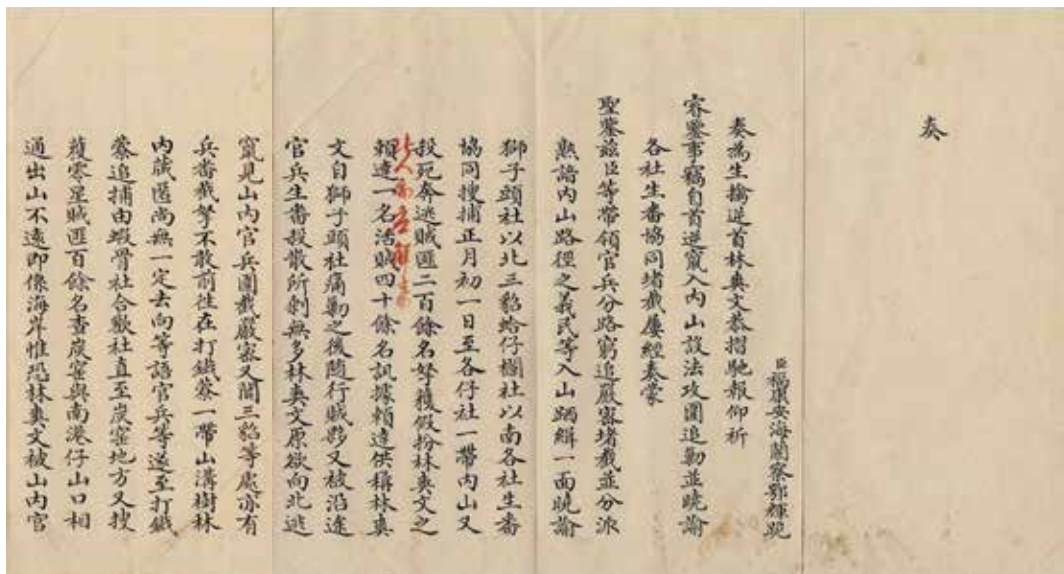 奏
臣福康安海蘭察鄂輝跪
奏為生擒逆首林爽文恭摺馳報仰祈
睿鑒事竊自首逆竄入內山設法攻圍追勦並曉諭
各社生番協同堵截屢經奏蒙
聖鑒茲臣等帶領官兵分路窮追嚴密堵截並分派
熟諳內山路徑之義民等入山跴緝一面曉諭
獅子頭社以北三貂蛤仔欄社以南各社生番
協同搜捕正月初一日至各仔社一帶內山又
投死奔逃賊匪二百餘名拏獲假扮林爽文之
賴達一名活賊四十餘名訊據賴達供稱林爽
此人亦應解京
文自獅子頭社痛勦之後隨行賊夥又被沿途
官兵生番殺散所剩無多林爽文原欲向北逃
竄見山內官兵圍截嚴密又聞三貂等處亦有
兵番截拏不敢前往在打鐵藔一帶山溝樹林
內藏匿尚無一定去向等語官兵等遂至打鐵
藔追捕由蝦骨社合歡社直至炭窰地方又搜
獲零星賊匪百餘名查炭窰與南港仔山口相
通出山不遠即係海岸惟恐林爽文被山內官